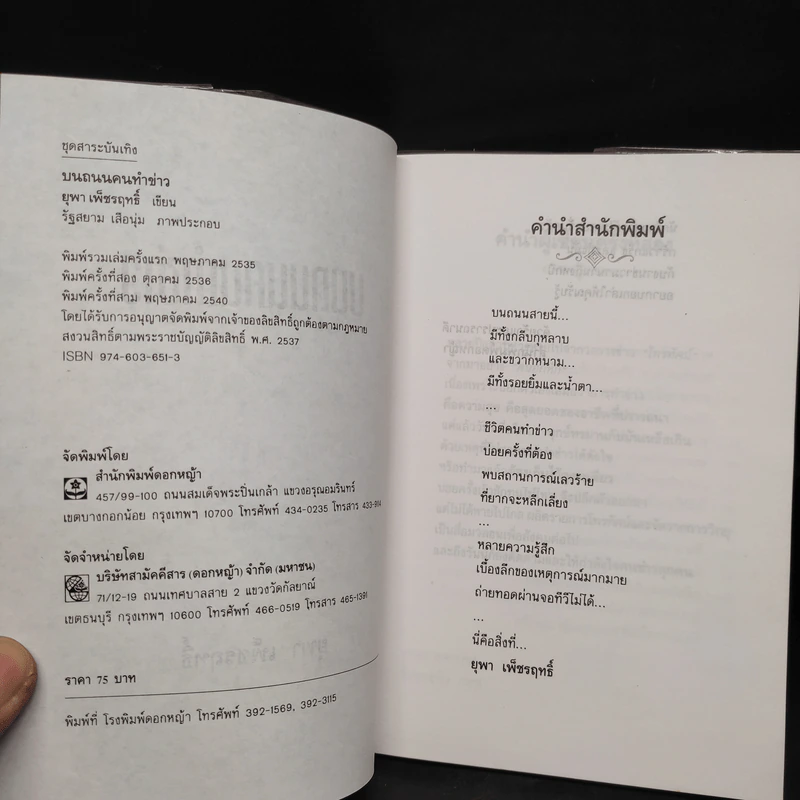 ชุดสาระบันเทิง
บนถนนคนทำข่าว
ยุพา เพ็ชรฤทธิ์ เขียน
รัฐสยาม เสือนุ่ม ภาพประกอบ
พิมพ์รวมเล่มครั้งแรก พฤษภาคม 2535
พิมพ์ครั้งที่สอง ตุลาคม 2536
พิมพ์ครั้งที่สาม พฤษภาคม 2540
โดยได้รับการอนุญาตจัดพิมพ์จากเจ้าของลิขสิทธิ์ถูกต้องตามกฎหมาย
สงวนสิทธิ์ตามพระราชบัญญัติลิขสิทธิ์ พ.ศ. 2537
ISBN 974-603-651-3
จัดพิมพ์โดย
สำนักพิมพ์ดอกหญ้า
457/99-100 ถนนสมเด็จพระปิ่นเกล้า แขวงอรุณอมรินทร์
เขตบางกอกน้อย กรุงเทพฯ 10700 โทรศัพท์ 434-0235 โทรสาร
จัดจำหน่ายโดย
บริษัทสามัคคีสาร (ดอกหญ้า) จำกัด (มหาชน)
71/12-19 ถนนเทศบาลสาย 2 แขวงวัดกัลยาณ์
เขตธนบุรี กรุงเทพฯ 10600 โทรศัพท์ 466-0519 โทรสาร 465-1391
ราคา 75 บาท
พิมพ์ที่ โรงพิมพ์ดอกหญ้า โทรศัพท์ 392-1569, 392-3115
คำนำสำนักพิมพ์
บนถนนสายนี้...
มีทั้งกลีบกุหลาบ
และขวากหนาม...
มีทั้งรอยยิ้มและน้ำตา...
...
ชีวิตคนทำข่าว
บ่อยครั้งที่ต้อง
พบสถานการณ์เลวร้าย
ที่ยากจะหลีกเลี่ยง
...
หลายความรู้สึก
เบื้องลึกของเหตุการณ์มากมาย
ถ่ายทอดผ่านจอทีวีไม่ได้...
...
นี่คือสิ่งที่...
ยุพา เพ็ชรฤทธิ์